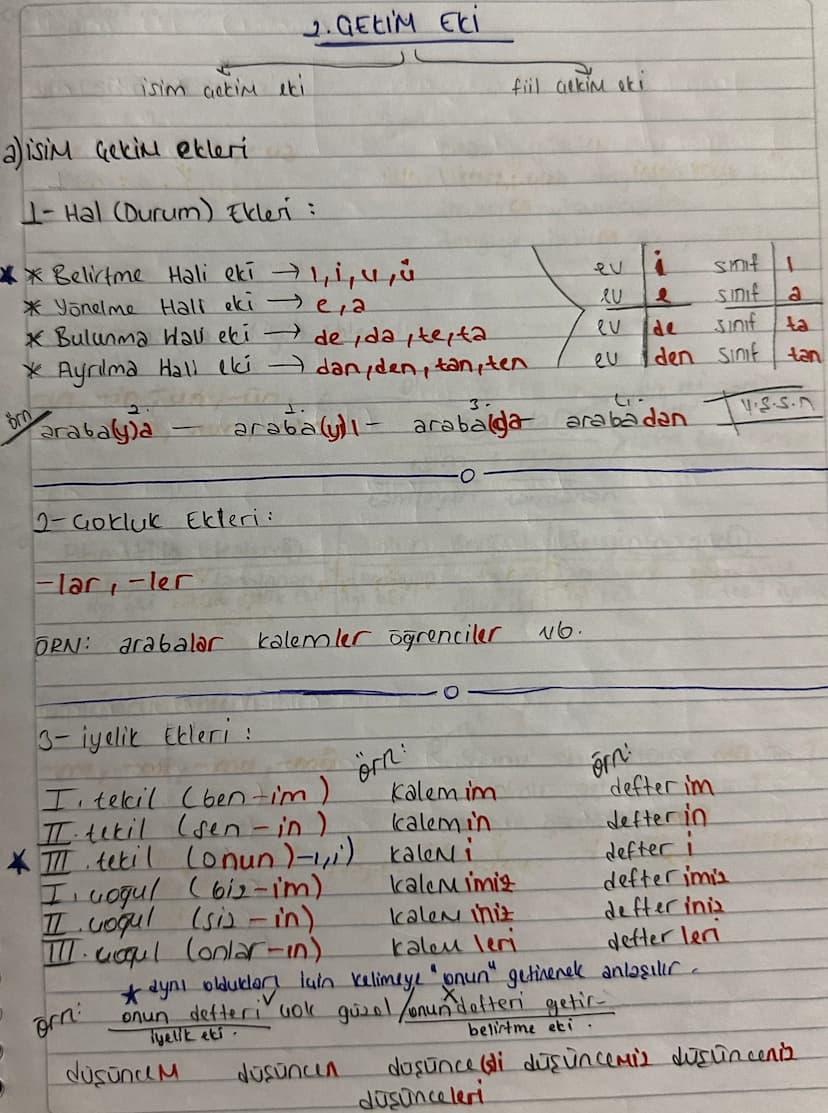 2. ÇEKİM EKİ
isim çekim eki fiil çekim eki
a) isim çekim ekleri
1- Hal (Durum) Ekleri :
* Belirtme Hali eki → ı, i, u, ü ev i sınıf ı
* Yönelme Hali eki → e, a ev e sınıf a
* Bulunma Hali eki → de, da, te, ta ev de sınıf ta
* Ayrılma Hali eki → dan, den, tan, ten ev den sınıf tan
2. 1. 3. 4.
örn araba(y)a - araba(y)ı - arabada arabadan y.ş.s.n
2- Çokluk Ekleri :
-lar, -ler
ÖRN: arabalar kalemler öğrenciler vb.
3- iyelik Ekleri :
örn: örn:
I. tekil (ben-im) kalem im defter im
II. tekil (sen-in) kalem in defter in
III. tekil (onun)-ı,i) kalem i defter i
I. çoğul (biz-im) kalem imiz defter imiz
II. çoğul (siz-in) kalem iniz defter iniz
III. çoğul (onlar-ın) kalem leri defter leri
* aynı oldukları için kelimeye "onun" getirerek anlaşılır.
örn: onun defteri çok güzel / onun defteri getir-
iyelik eki. belirtme eki.
düşüncem düşüncen düşünce(s)i düşüncemiz düşünceniz
düşünceleri